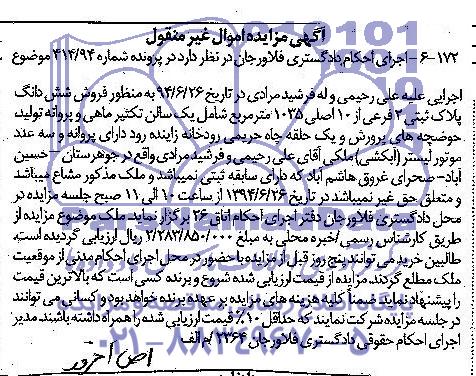 آگهی مزایده اموال غیر منقول
۶-۱۷۲ - اجرای احکام دادگستری فلاورجان در نظر دارد در پرونده شماره ۴۱۴/۹۴ موضوع
اجرایی علیه علی رحیمی و له فرشید مرادی در تاریخ ۹۴/۶/۲۶ به منظور فروش شش دانگ
پلاک ثبتی ۲ فرعی از ۱۰ اصلی ۱۰۳۵ مترمربع شامل یک سالن تکثیر ماهی و پروانه تولید
حوضچه های پرورش و یک حلقه چاه حریمی رودخانه زاینده رود دارای پروانه و سه عدد
موتور لیستر (آبکشی) ملکی آقای علی رحیمی و فرشید مرادی واقع در جوهرستان - حسین
آباد- صحرای غروق هاشم آباد که دارای سابقه ثبتی نمیباشد و ملک مذکور مشاع میباشد
و متعلق حق غیر نمیباشد در تاریخ ۱۳۹۴/۶/۲۶ از ساعت ۱۰ الی ۱۱ صبح جلسه مزایده در
محل دادگستری فلاورجان دفتر اجرای احکام اتاق ۲۶ برگزار نماید. ملک موضوع مزایده از
طریق کارشناس رسمی/خبره محلی به مبلغ ۲/۲۸۳/۸۵۰/۰۰۰ ریال ارزیابی گردیده است.
طالبین خرید می توانند پنج روز قبل از مزایده با حضور در محل اجرای احکام مدنی از موقعیت
ملک مطلع گردند. مزایده از قیمت ارزیابی شده شروع و برنده کسی است که بالاترین قیمت
را پیشنهاد نماید. ضمناً کلیه هزینه های مزایده بر عهده برنده خواهد بود و کسانی می توانند
در جلسه مزایده شرکت نمایند که حداقل ۱۰٪ قیمت ارزیابی شده را همراه داشته باشند. مدیر
اجرای احکام حقوقی دادگستری فلاورجان ۳۳۶۴/م الف
۰۲۱-۸۸۳۴۹۶۷۰-۵